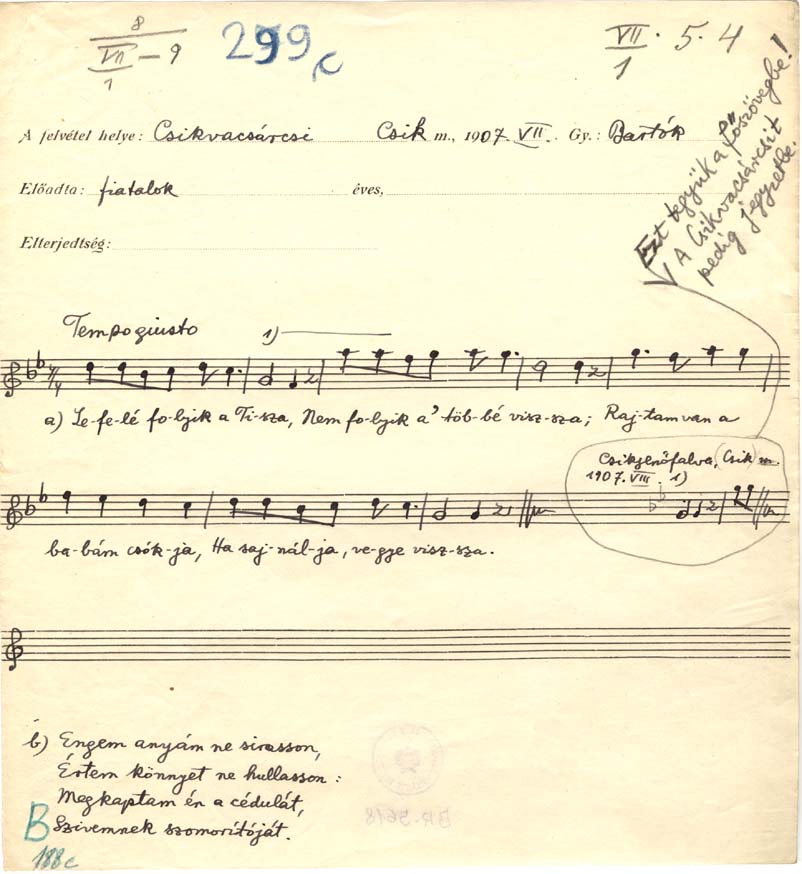 8
VII - 9
1
299c
VII. 5. 4
1
A felvétel helye: Csikvacsárcsi Csik m., 1907. VII. Gy.: Bartók
Előadta: fiatalok éves,
Elterjedtség:
Ezt tegyük a főszövegbe!
A Csikvacsárcsit
pedig jegyzetbe.
Tempo giusto 1)
a) Le-fe-lé fo-lyik a Ti-sza, Nem fo-lyik a' töb-bé visz-sza; Raj-tam van a
Csikjenőfalva, (Csik) m.
1907. VIII. 1)
ba-bám csók-ja, Ha saj-nál-ja, ve-gye visz-sza.
b) Engem anyám ne sirasson,
Értem könnyet ne hullasson:
Megkaptam én a cédulát,
Szivemnek szomorítóját.
B
188c